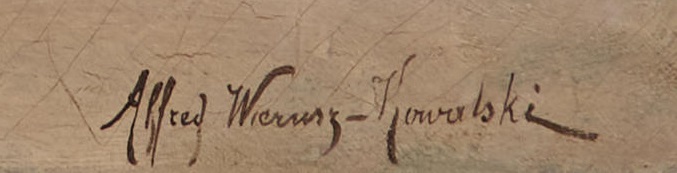 Alfred Wierusz-Kowalski